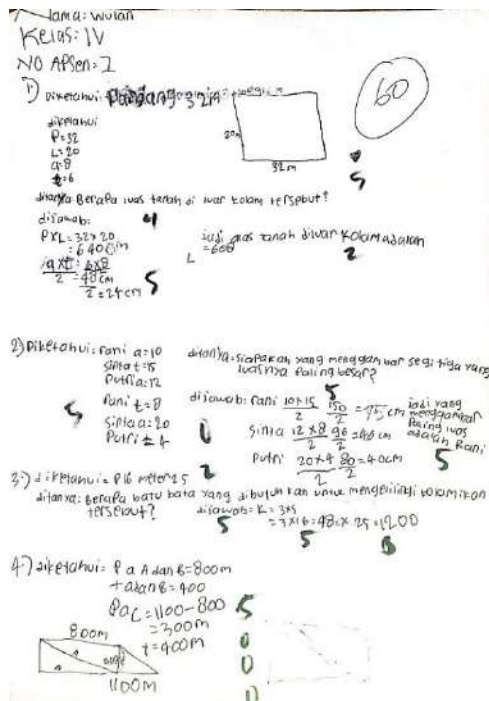 Nama: Wulan
Kelas: IV
NO Apsen: 2
1) Diketahui: Panjang 32m
diketahui
P=32
L=20
a=8
t=6
20m
32m
60
5
ditanya Berapa luas tanah di luar kolam tersebut?
4
dijawab:
PXL=32x20
=640cm
jadi luas tanah diluar kolam adalah
=608
L
2
axt = 6x8
2 = 48cm
2 = 24cm
5
2) Diketahui: rani a=10
sinta t=15
Putri a=12
rani t=8
sinta a=20
Putri t=4
5
ditanya: siapakah yang menggambar segi tiga yang luasnya Paling besar?
5
dijawab: rani 10x15 150 = 75cm
2 2
sinta 12x8 96 = 48cm
2 2
Putri 20x4 80 = 40cm
2 2
jadi yang
menggambar
Paling luas
adalah Rani
5
3.) diketahui = P16 meter 25
2
ditanya: Berapa batu bata yang dibutuhkan untuk mengelilingi kolam ikan
tersebut?
dijawab = K = 3xs
= 3x16 = 48 x 25 = 1200
5
5
4.) diketahui = P a A dan B = 800m
t a dan B = 400
Pac = 1100-800
= 300m
t = 400m
5
0
0
800m
1100m